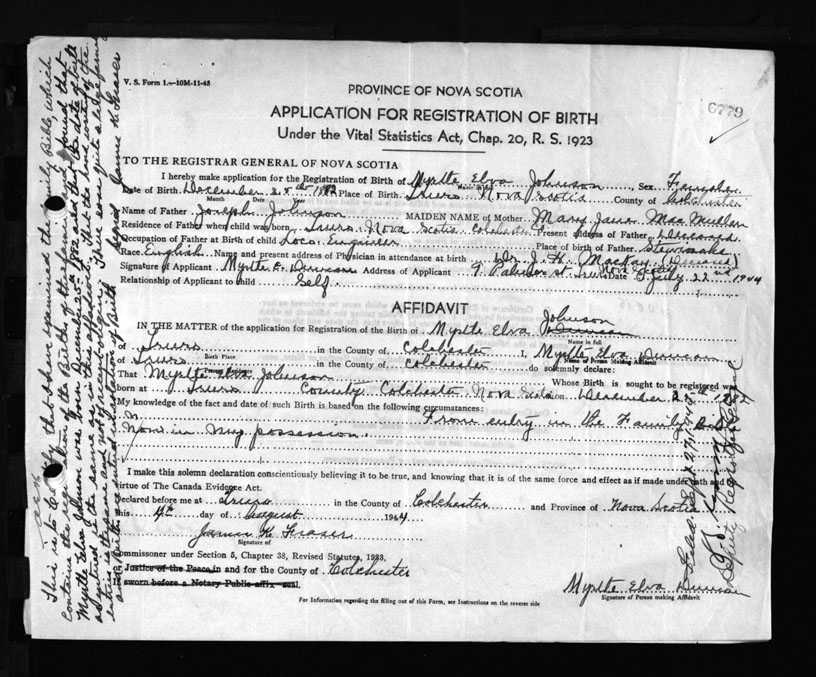 V. S. Form 1.—10M-11-43
PROVINCE OF NOVA SCOTIA
6779
APPLICATION FOR REGISTRATION OF BIRTH
Under the Vital Statistics Act, Chap. 20, R. S. 1923
TO THE REGISTRAR GENERAL OF NOVA SCOTIA
I hereby make application for the Registration of Birth of Myrtle Elva Johnson, Sex
Name in full
Date of Birth December 25th 1882 Place of Birth Truro Nova Scotia County of Colchester
Month Date Year
Name of Father Joseph Johnson MAIDEN NAME of Mother Mary Jane MacMullen
Residence of Father when child was born Truro Nova Scotia Colchester Co Present address of Father Deceased
Occupation of Father at Birth of child Loco. Engineer Place of birth of Father Stewiacke
Race English Name and present address of Physician in attendance at birth Dr. MacKay (Deceased)
Signature of Applicant Myrtle E. Duncan Address of Applicant 9 Palmer St Truro Nova Scotia Date July 22nd 1944
Relationship of Applicant to child Self
AFFIDAVIT
IN THE MATTER of the application for Registration of the Birth of Myrtle Elva Johnson Duncan
Name in full
of Truro in the County of Colchester I, Myrtle Elva Duncan
Birth Place Name of Person Making Affidavit
of Truro in the County of Colchester do solemnly declare:
That Myrtle Elva Johnson Whose Birth is sought to be registered was
born at Truro County Colchester Nova Scotia on December 25th
My knowledge of the fact and date of such Birth is based on the following circumstances: From entry in the Family Bible
Now in my possession.
I make this solemn declaration conscientiously believing it to be true, and knowing that it is of the same force and effect as if made under oath and by
virtue of The Canada Evidence Act.
Declared before me at Truro in the County of Colchester and Province of Nova Scotia
this 4th day of August 1944
James K. Fraser
Signature of
Commissioner under Section 5, Chapter 38, Revised Statutes, 1923,
Justice of the Peace in and for the County of Colchester
If sworn before a Notary Public affix seal.
Myrtle Elva Duncan
Signature of Person making Affidavit
For Information regarding the filling out of this Form, see Instructions on the reverse side
This is to Certify that I have examined the Family Bible, which
contains the registration of the Births of the family and found that
Myrtle Elva Johnson was born December 25th 1882 and that the date of birth
is the same as in this affidavit. That the handwriting of the
entry is
Signed James K Fraser
Deputy Registrar General